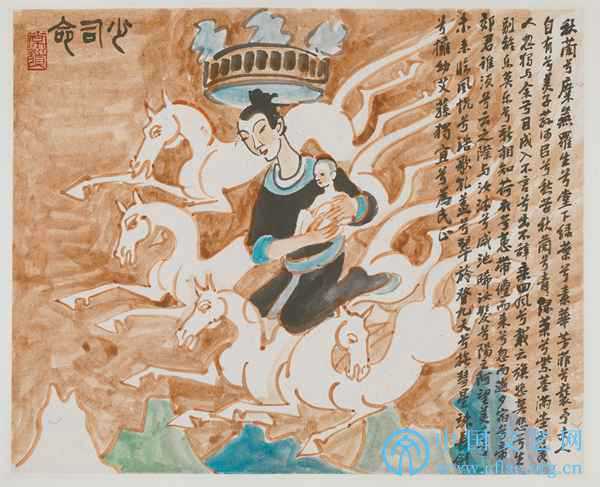 少司命
秋蘭兮麋蕪羅生兮堂下綠葉兮素華芳菲兮襲予夫人
自有兮美子蓀何以兮愁苦秋蘭兮青綠葉兮紫莖滿堂兮美
人忽獨與余兮目成入不言兮出不辭乘回風兮載云旗悲莫悲兮生
別離樂莫樂兮新相知荷衣兮蕙帶儵而來兮忽而逝夕宿兮帝
郊君誰須兮云之際與汝沐兮咸池晞汝髮兮陽之阿望美人兮
未來臨風怳兮浩歌孔蓋兮翠旍登九天兮撫彗星竦長劍
兮擁幼艾蓀獨宜兮為民正
中国文艺网
www.cflac.org.cn